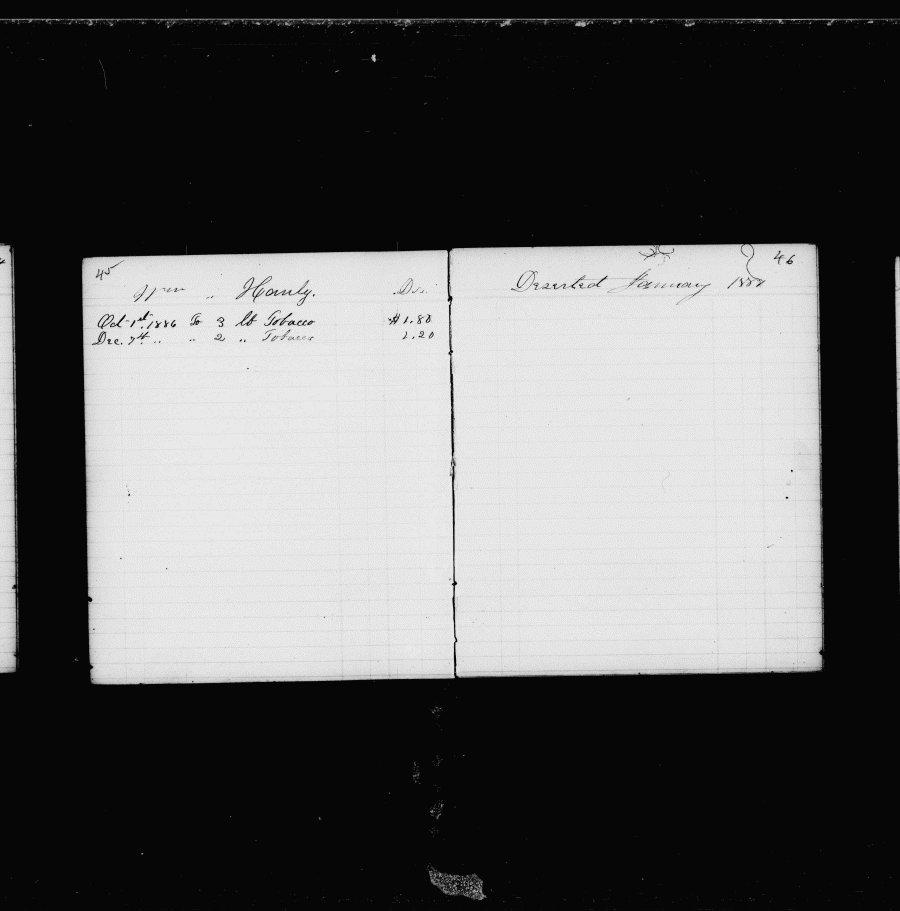 45
" Hanly. Dr.
Oct. 1st. 1886 To 3 lb Tobacco $1.80
Dec. 7th " " 2 " Tobacco 1.20
46
Deserted January